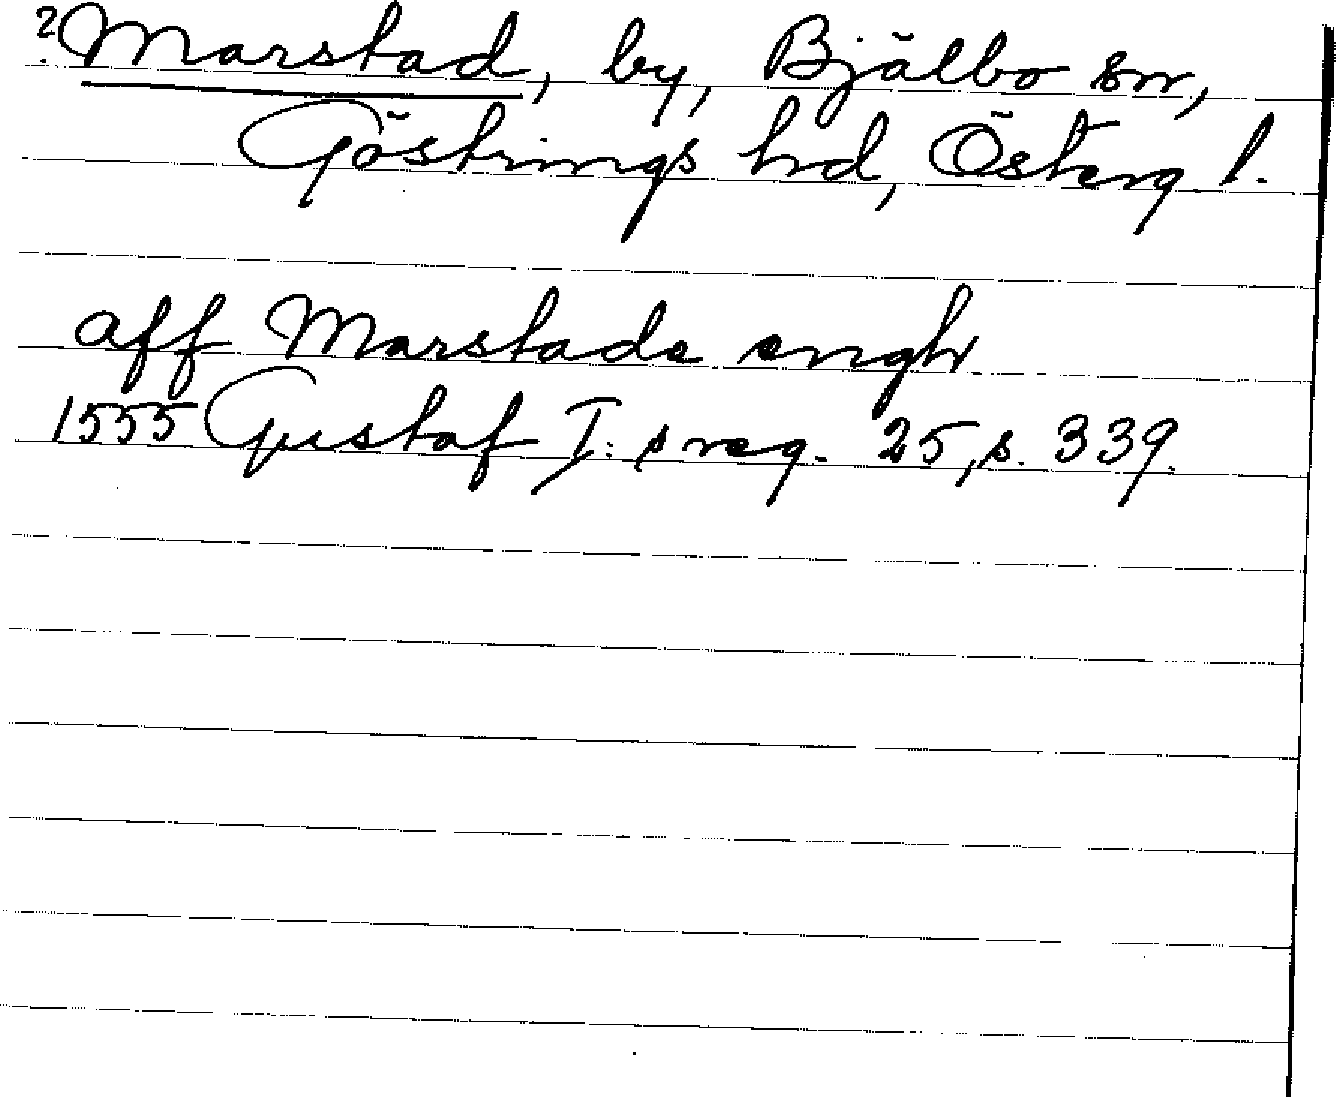 ? Marstad, by, Bjälbo sn,
Göstrings hrd, Österg l.
aff Marstada engh
1555 Gustaf I:s reg. 25, s. 339.